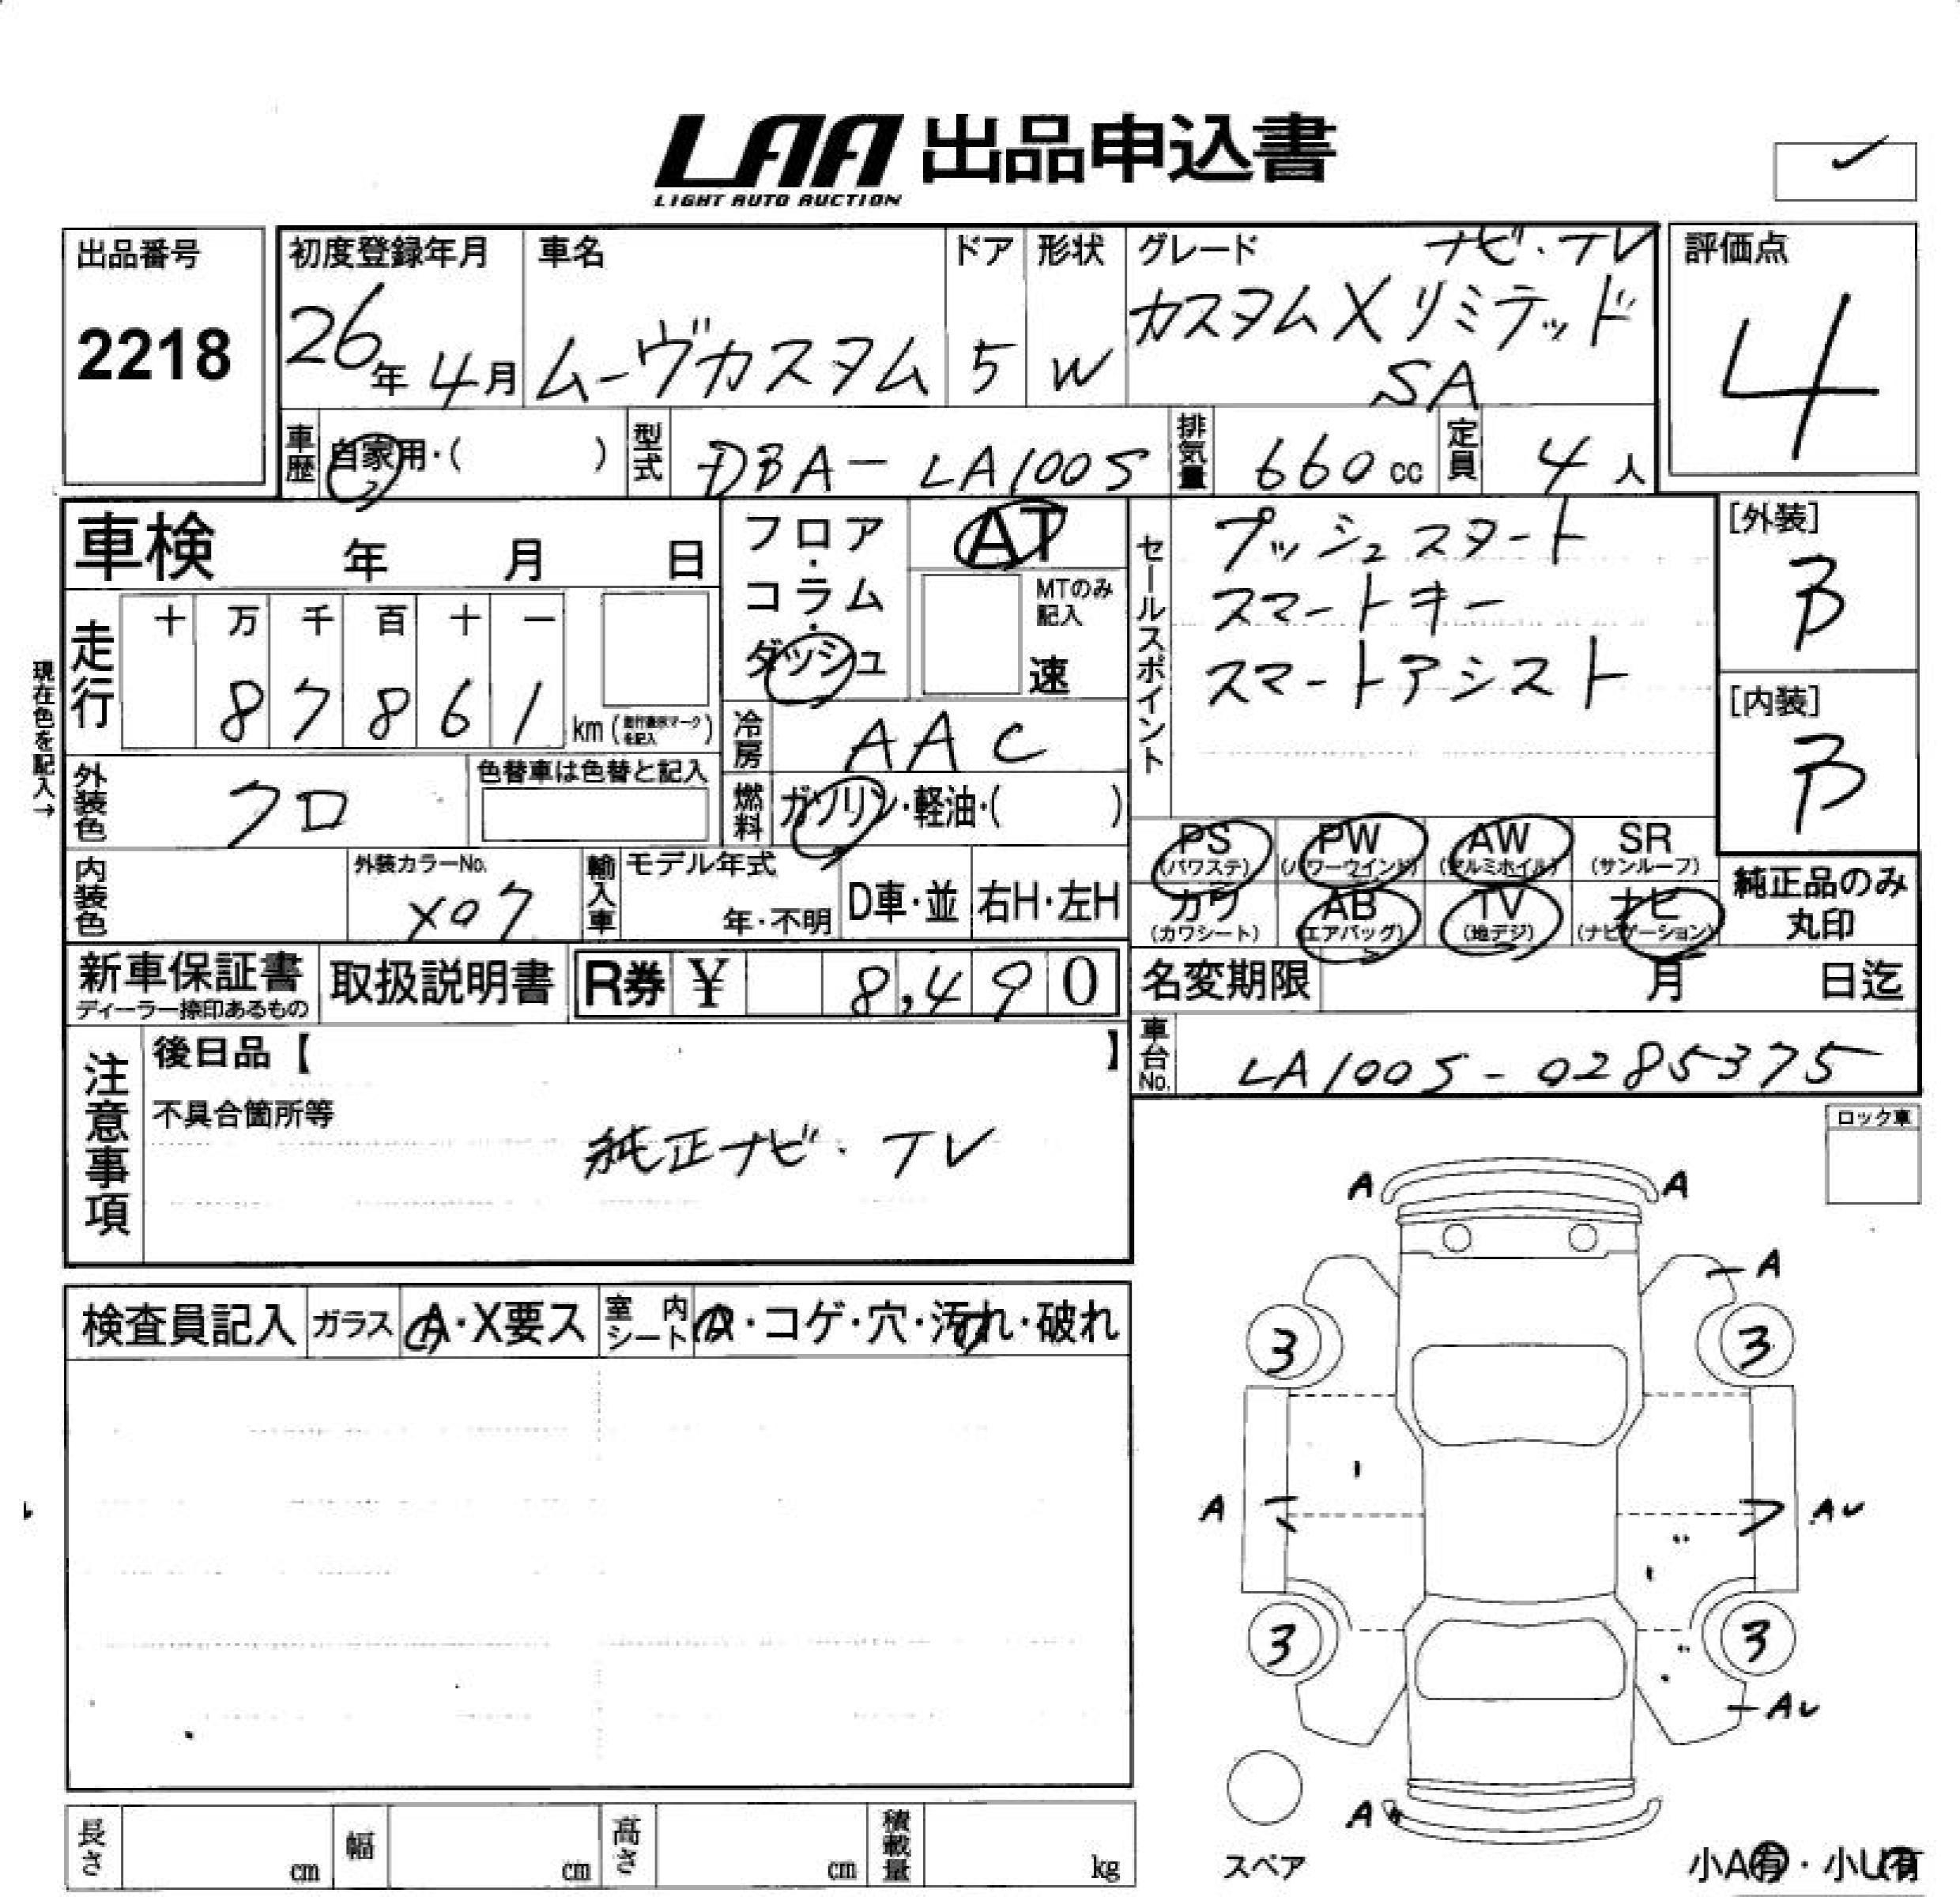 LAA 出品申込書
LIGHT AUTO AUCTION
出品番号
2218
初度登録年月
26年 4月
車名
ムーヴカスタム
ドア
5
形状
W
グレード ナビ・TV
カスタムXリミテッド
SA
評価点
4
車歴 自家用・( )
型式 DBA-LA100S
排気量 660cc
定員 4人
車検 年 月 日
走行 十 万 千 百 十 一
87861 km (走行表示マークを記入)
現在色を記入→
外装色 クロ
色替車は色替と記入
内装色
外装カラーNo.
X07
フロア・コラム・ダッシュ
AT
MTのみ記入
速
冷房 AAC
燃料 ガソリン・軽油・( )
輸入車 モデル年式
年・不明
D車・並
右H・左H
セールスポイント
プッシュスタート
スマートキー
スマートアシスト
[外装]
B
[内装]
B
PS (パワステ)
PW (パワーウインド)
AW (アルミホイル)
SR (サンルーフ)
カワ (カワシート)
AB (エアバッグ)
TV (地デジ)
ナビ (ナビゲーション)
純正品のみ
丸印
新車保証書
ディーラー捺印あるもの
取扱説明書
R券 ¥ 8,490
名変期限 月 日迄
車台No. LA100S-0285375
注意事項
後日品【 】
不具合箇所等
純正ナビ・TV
ロック車
検査員記入
ガラス A・X要ス
室内シート
・コゲ・穴・汚れ・破れ
A A
A
3 3
A AU
3 3
AU
A
スペア
小A有・小U有
長さ cm
幅 cm
高さ cm
積載量 kg